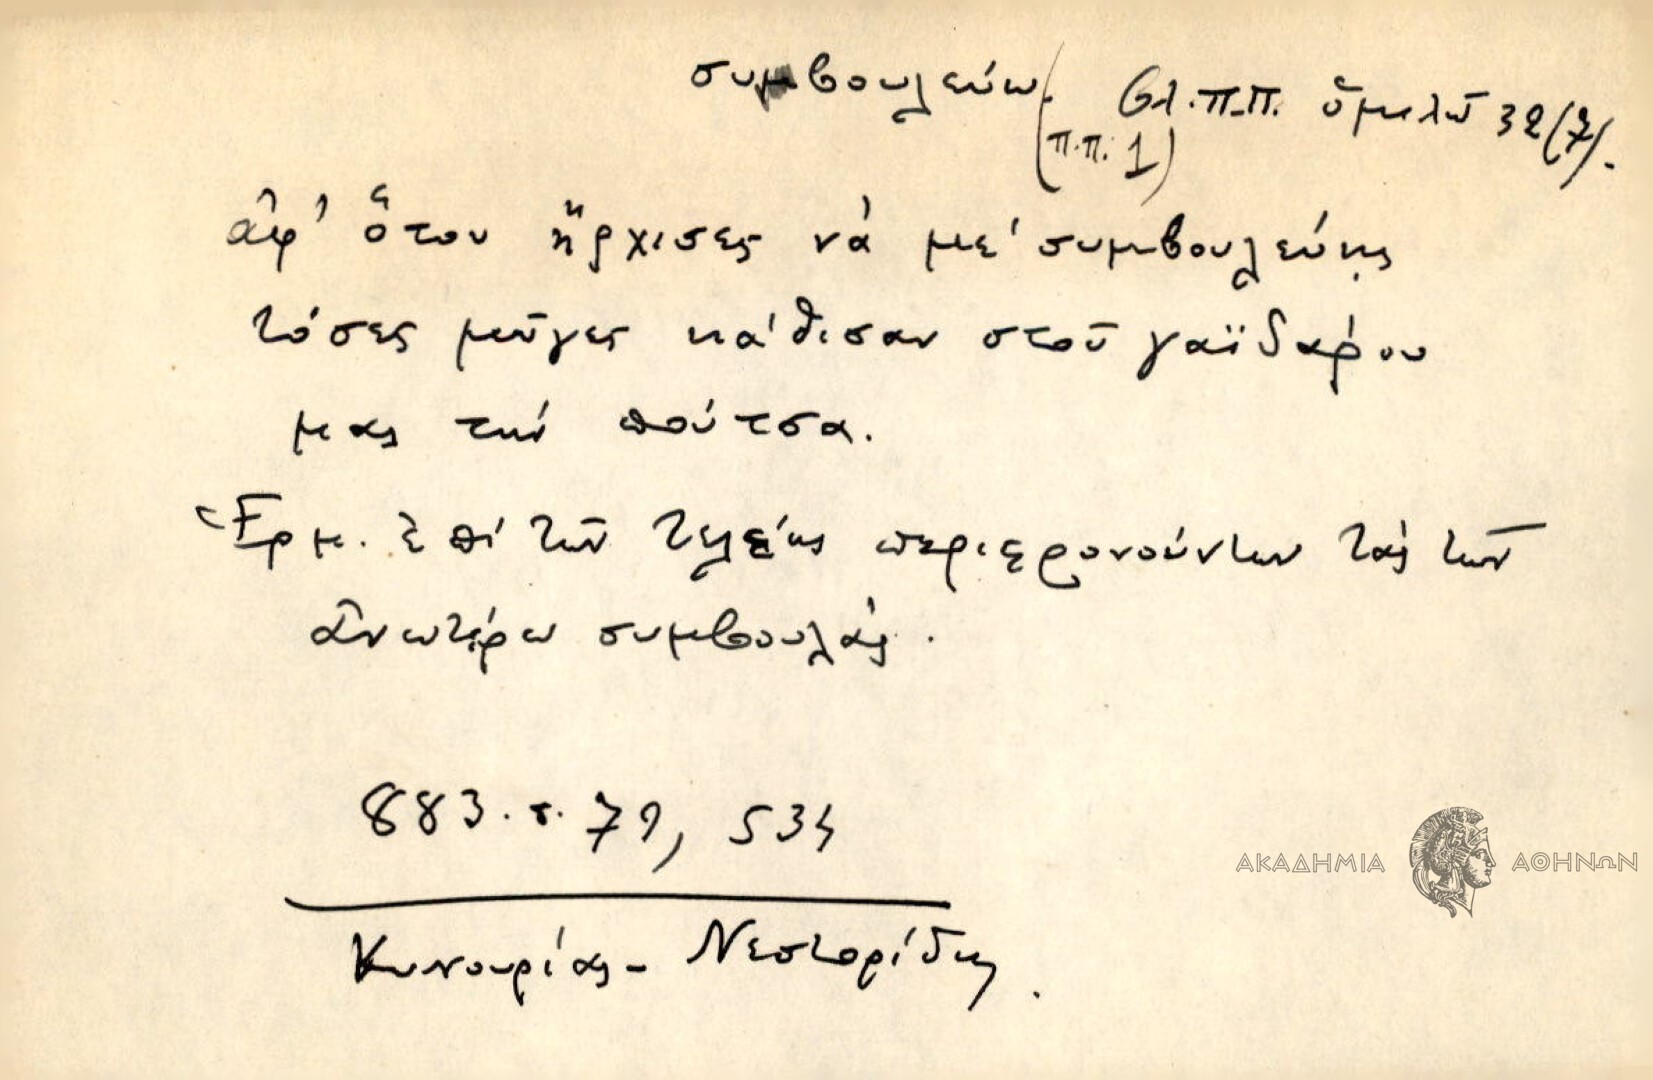 συμβουλεύω. βλ. π.π. ὁμιλῶ 32(7).
(π.π. 1)
ἀφ' ὅτου ἤρχισες νὰ μὲ συμβουλεύῃς
τόσες μῦγες κάθισαν στοῦ γαϊδάρου
μας τὴν πούτσα.
Ἑρμ. ἐπὶ τῶν τελείως περιφρονούντων τὰς τῶν
ἀνωτέρω συμβουλάς.
883. σ. 79, 534
Κυνουρίας - Νεστορίδης.
ΑΚΑΔΗΜΙΑ ΑΘΗΝΩΝ